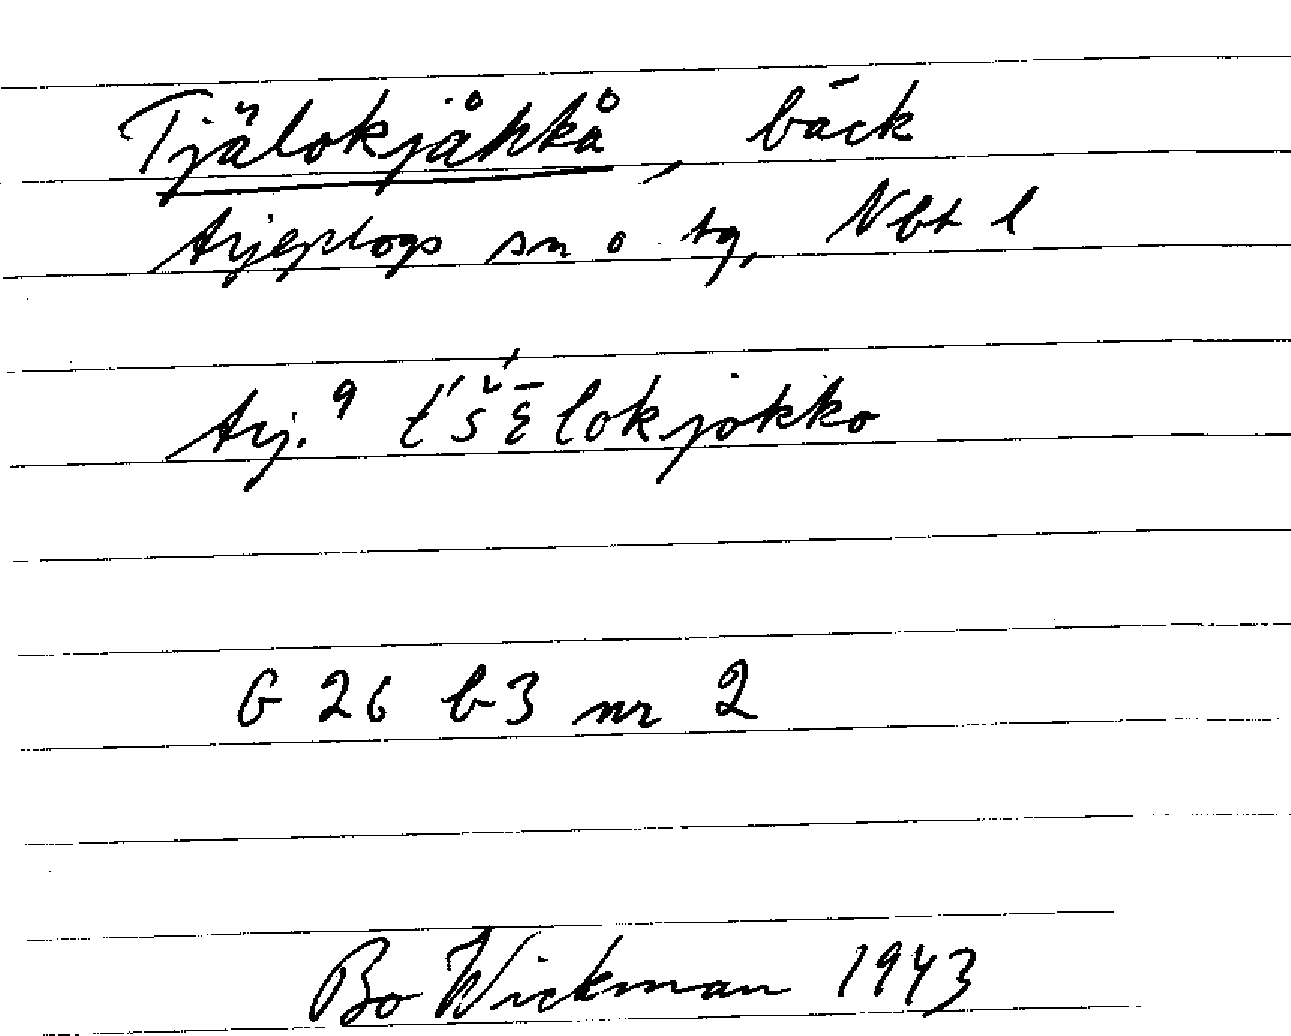 Tjälokjåhkå, bäck
Arjeplogs sn o tg, Nbt l
Arj. 9 t́š́ɛ̄́lokjokko
G 26 b3 nr 2
Bo Wickman 1943